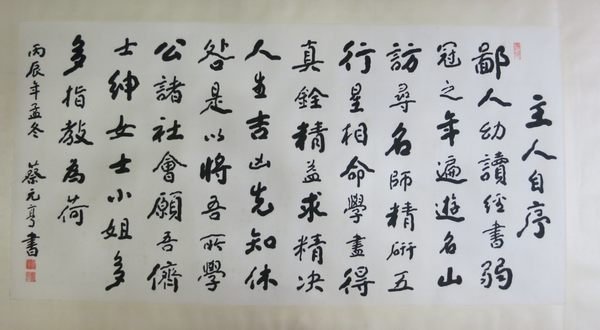 主人自序
鄙人幼讀經書弱
冠之年遍遊名山
訪尋名師精研五
行星相命學盡得
真銓精益求精決
人生吉凶先知休
咎是以將吾所學
公諸社會願吾儕
士紳女士小姐多
多指教為荷
丙辰年孟冬 蔡元亨書